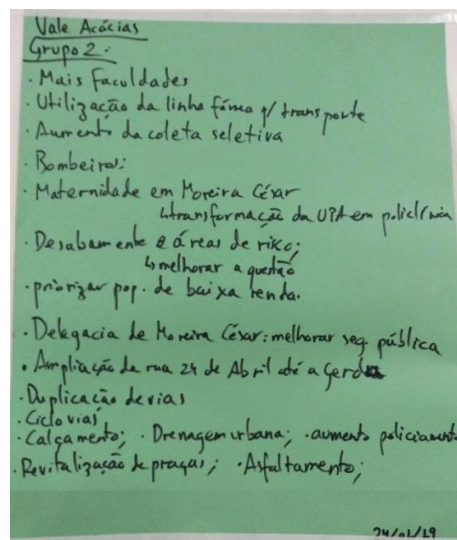 Vale Acácias
Grupo 2:
· Mais Faculdades
· Utilização da linha férrea p/ transporte
· Aumento da coleta seletiva
· Bombeiros:
· Maternidade em Moreira César
↳transformação da UPA em policlínica
· Desabamento e áreas de risco;
↳melhorar a questão
· priorizar pop. de baixa renda.
· Delegacia de Moreira César: melhorar seg. pública
· Ampliação da rua 24 de Abril até a
· Duplicação de vias
· Ciclovias
· Calçamento; · Drenagem urbana; · aumento policiamento
· Revitalização de praças; · Asfaltamento;